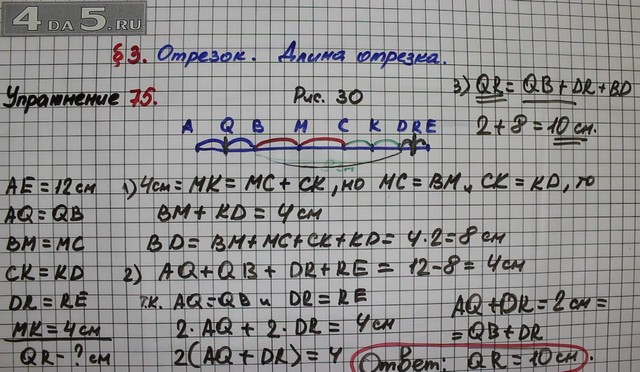 4 DA 5.RU
§3. Отрезок. Длина отрезка.
Упражнение 75.
Рис. 30
A Q B M C K D R E
AE = 12 см
AQ = QB
BM = MC
CK = KD
DR = RE
MK = 4 см
QR - ? см
1) 4 см = MK = MC + CK, но MC = BM и CK = KD, то
BM + KD = 4 см
BD = BM + MC + CK + KD = 4·2 = 8 см
2) AQ + QB + DR + RE = 12 - 8 = 4 см
т.к. AQ = QB и DR = RE
2·AQ + 2·DR = 4 см
2(AQ + DR) = 4
AQ + DR = 2 см =
= QB + DR
3) QR = QB + DR + BD
2 + 8 = 10 см.
Ответ: QR = 10 см.